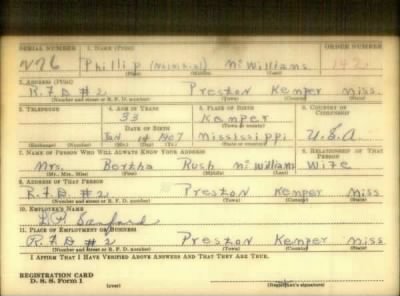 SERIAL NUMBER 1. NAME (Print) ORDER NUMBER
Phillip (No initial) McWilliams 142
(First) (Middle) (Last)
2. ADDRESS (Print)
R.F.D #2 Preston Kemper Miss.
(Number and street or R. F. D. number) (Town) (County) (State)
3. TELEPHONE 4. AGE IN YEARS 5. PLACE OF BIRTH 6. COUNTRY OF CITIZENSHIP
33 Kemper
DATE OF BIRTH (Town or county)
Jan 1907 Mississippi U.S.A
(Exchange) (Number) (Mo.) (Day) (Yr.) (State or country)
7. NAME OF PERSON WHO WILL ALWAYS KNOW YOUR ADDRESS 8. RELATIONSHIP OF THAT PERSON
Mrs. Bertha Rush McWilliams Wife
(Mr., Mrs., Miss) (First) (Middle) (Last)
9. ADDRESS OF THAT PERSON
R.F.D #2 Preston Kemper Miss
(Number and street or R. F. D. number) (Town) (County) (State)
10. EMPLOYER'S NAME
Sanford
11. PLACE OF EMPLOYMENT OR BUSINESS
R.F.D #2 Preston Kemper Miss
(Number and street or R. F. D. number) (Town) (County) (State)
I AFFIRM THAT I HAVE VERIFIED ABOVE ANSWERS AND THAT THEY ARE TRUE.
REGISTRATION CARD
D. S. S. Form 1 (over) (Registrant's signature)